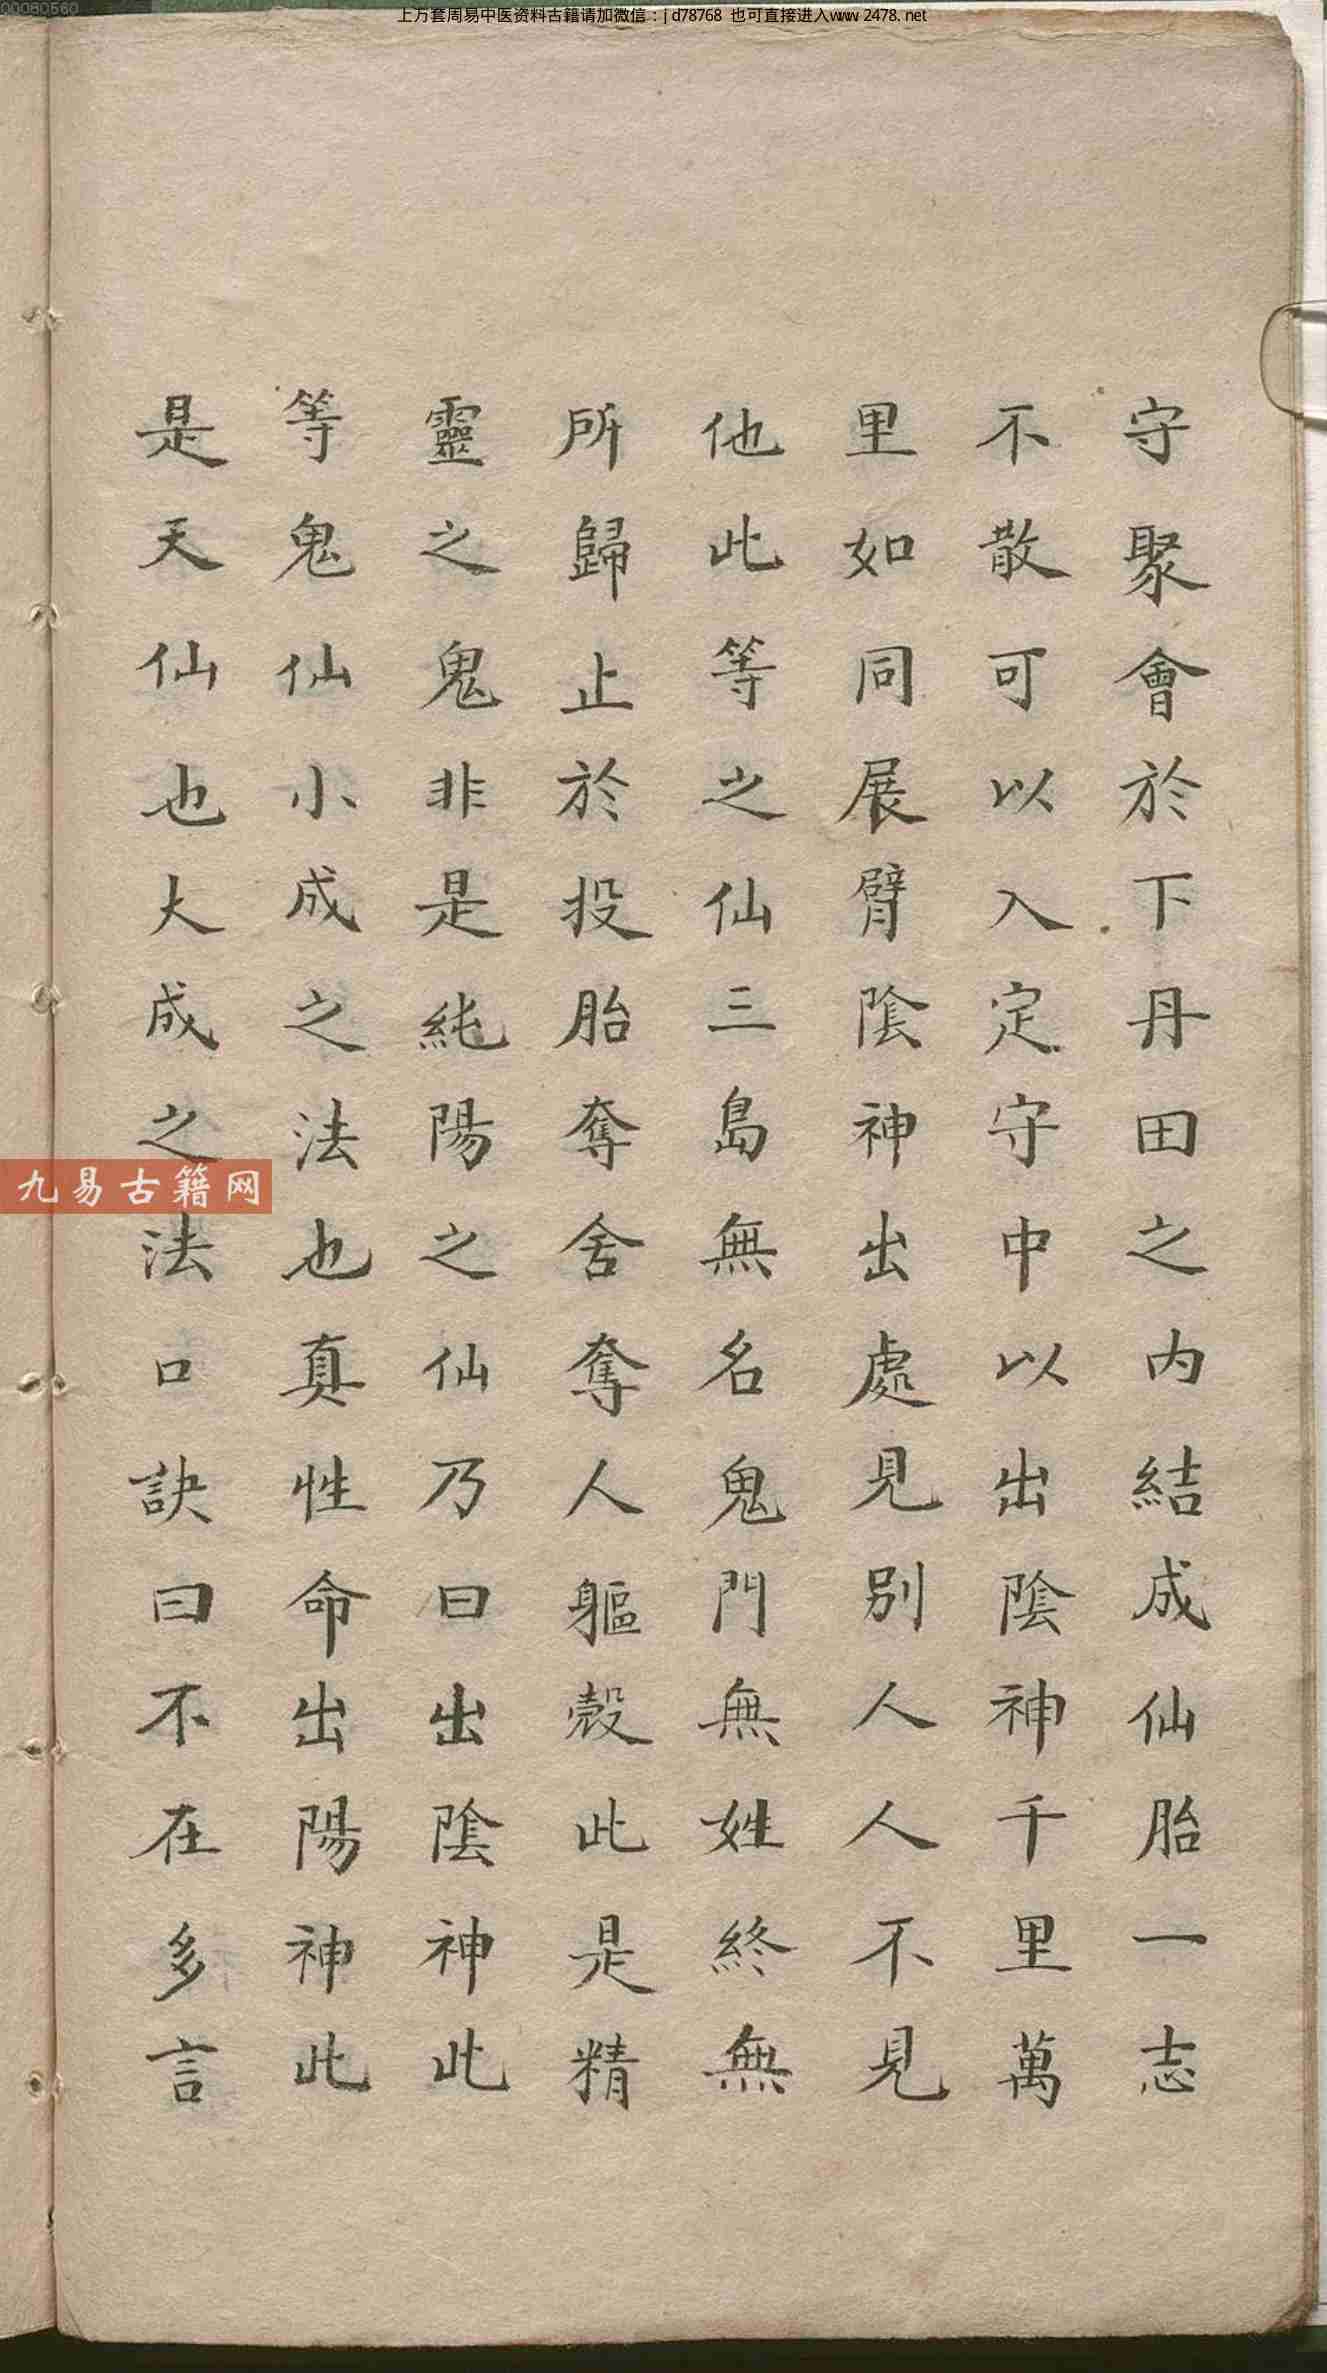 00080560
上万套周易中医资料古籍请加微信：jd78768 也可直接进入www2478.net
守聚會於下丹田之内結成仙胎一志
不散可以入定守中以出陰神千里萬
里如同展臂陰神出處見別人人不見
他此等之仙三島無名鬼門無姓終無
所歸止於投胎奪舍奪人軀殼此是精
靈之鬼非是純陽之仙乃曰出陰神此
等鬼仙小成之法也真性命出陽神此
是天仙也大成之法口訣曰不在多言
九易古籍网